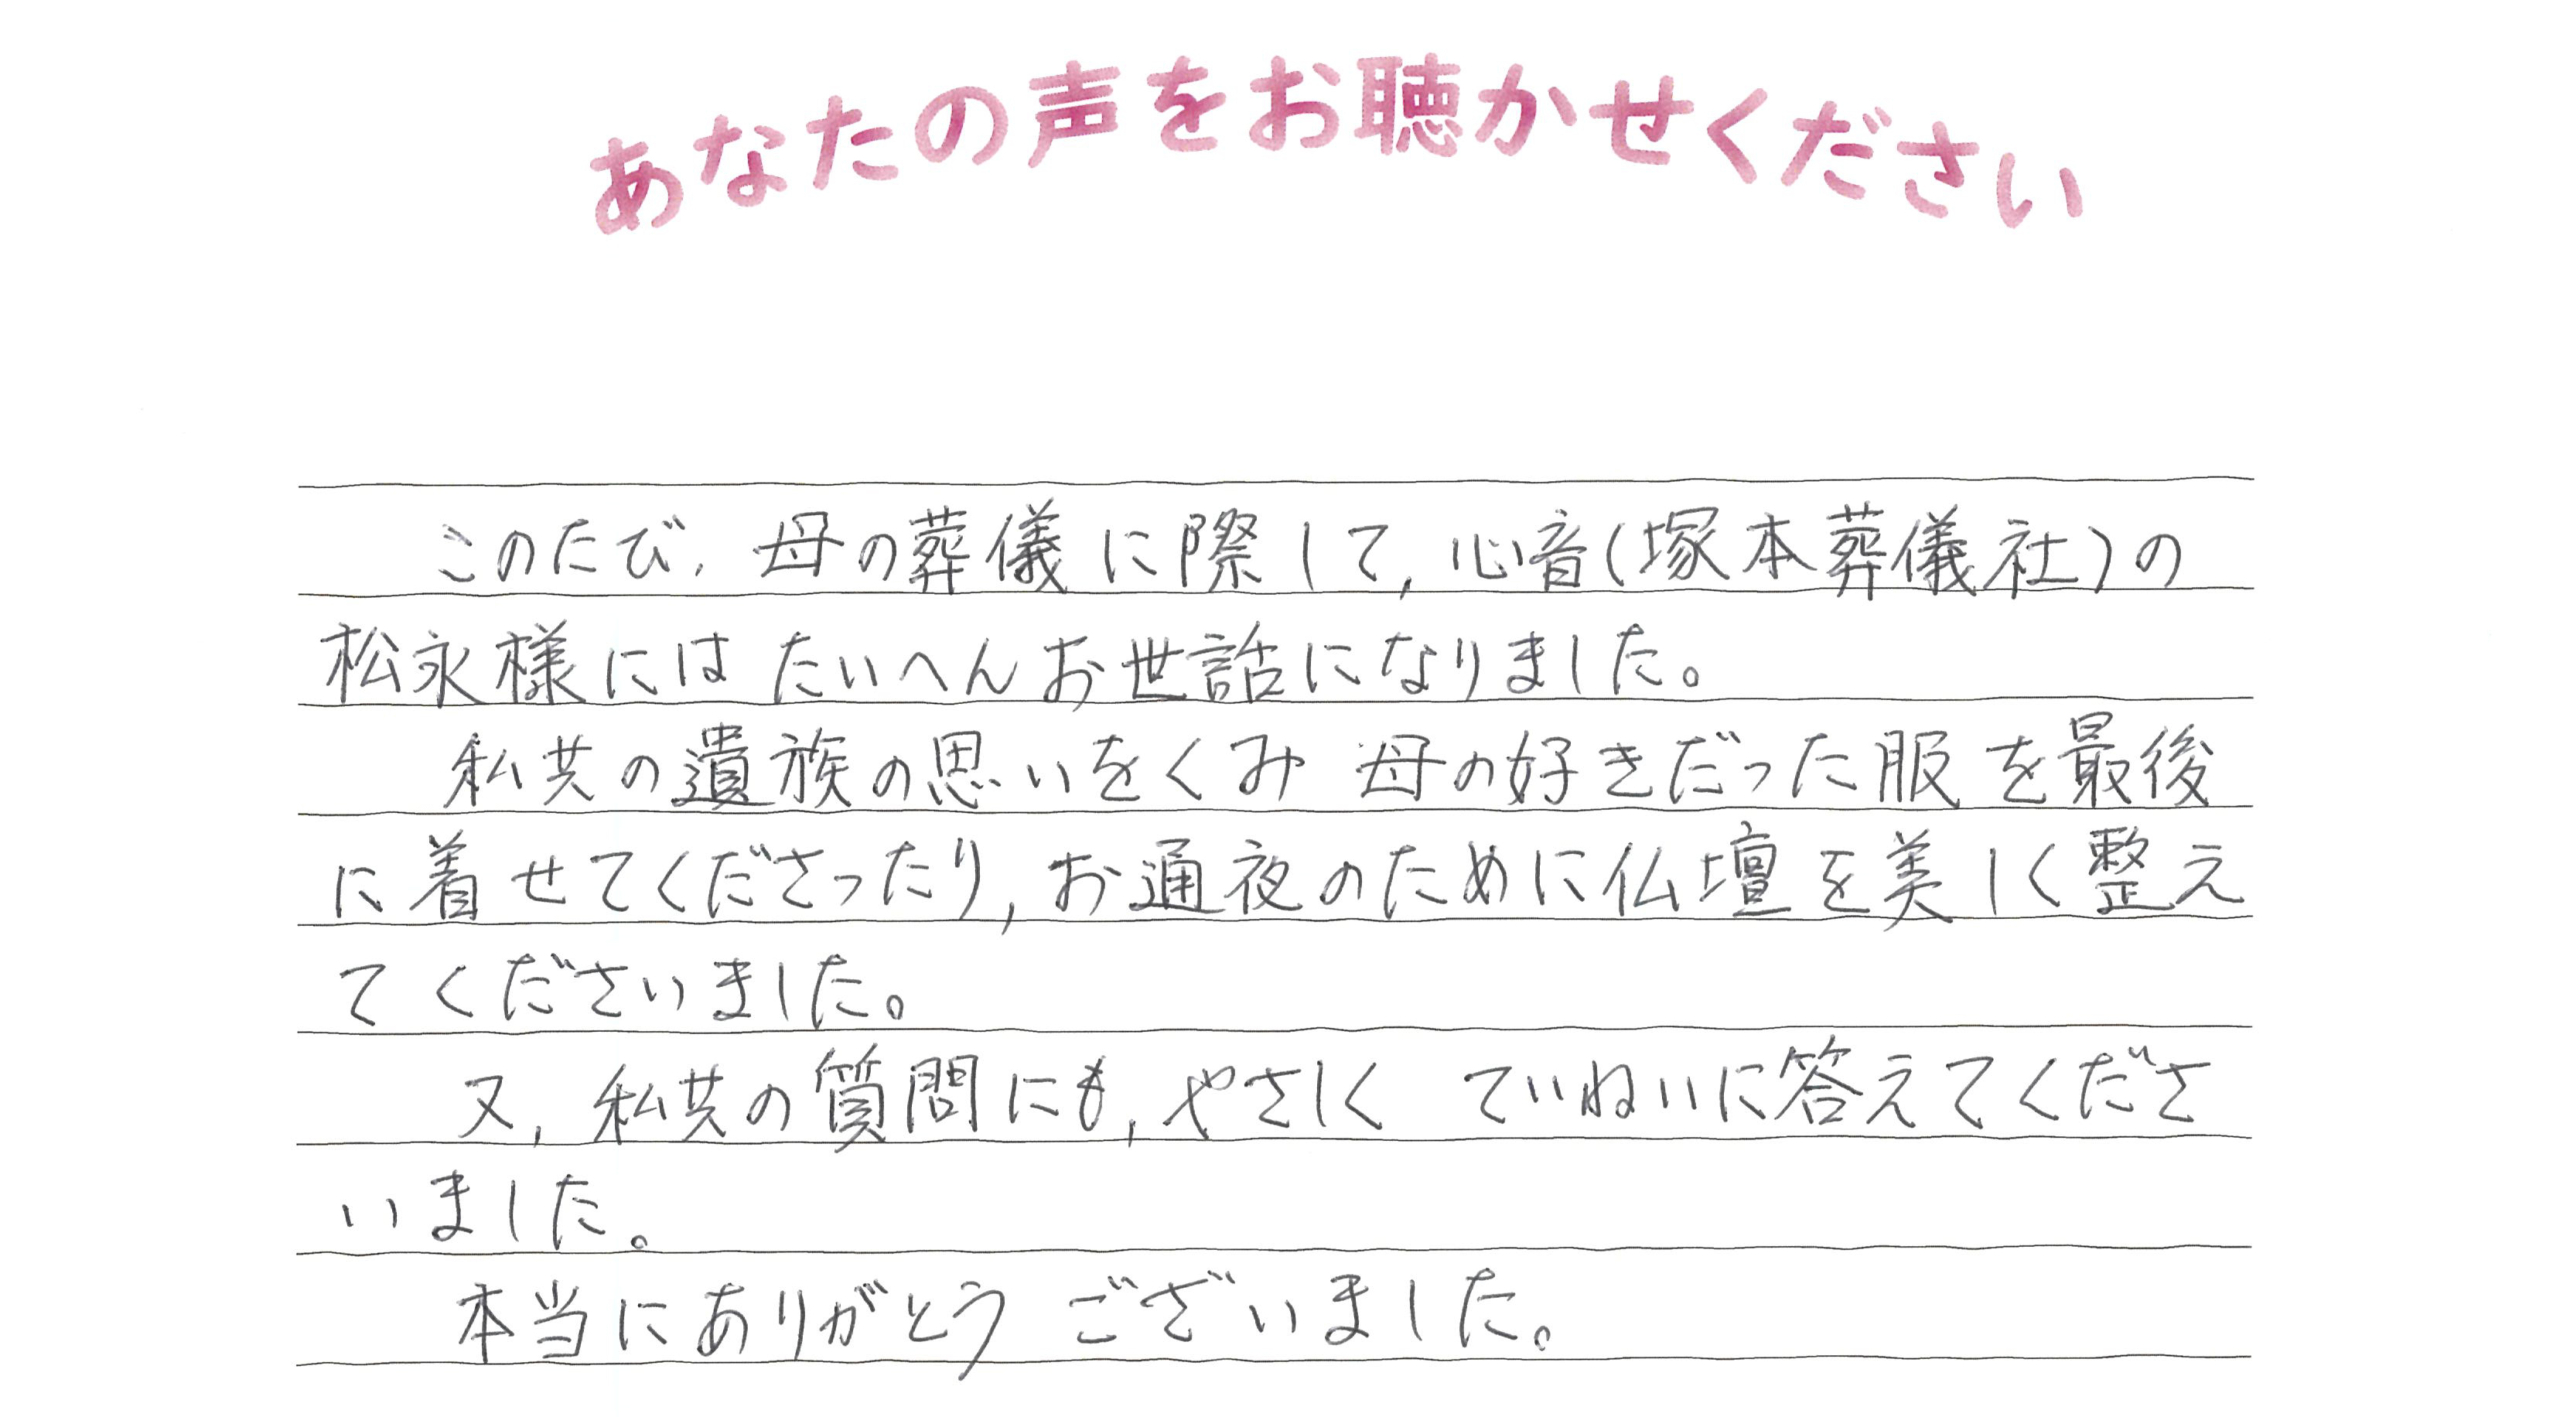 あなたの声をお聴かせください
このたび, 母の葬儀に際して, 心音(塚本葬儀社)の
松永様には たいへんお世話になりました。
私共の遺族の思いをくみ 母の好きだった服を最後
に着せてくださったり, お通夜のために仏壇を美しく整え
てくださいました。
又, 私共の質問にも, やさしく ていねいに答えてくださ
いました。
本当にありがとう ございました。